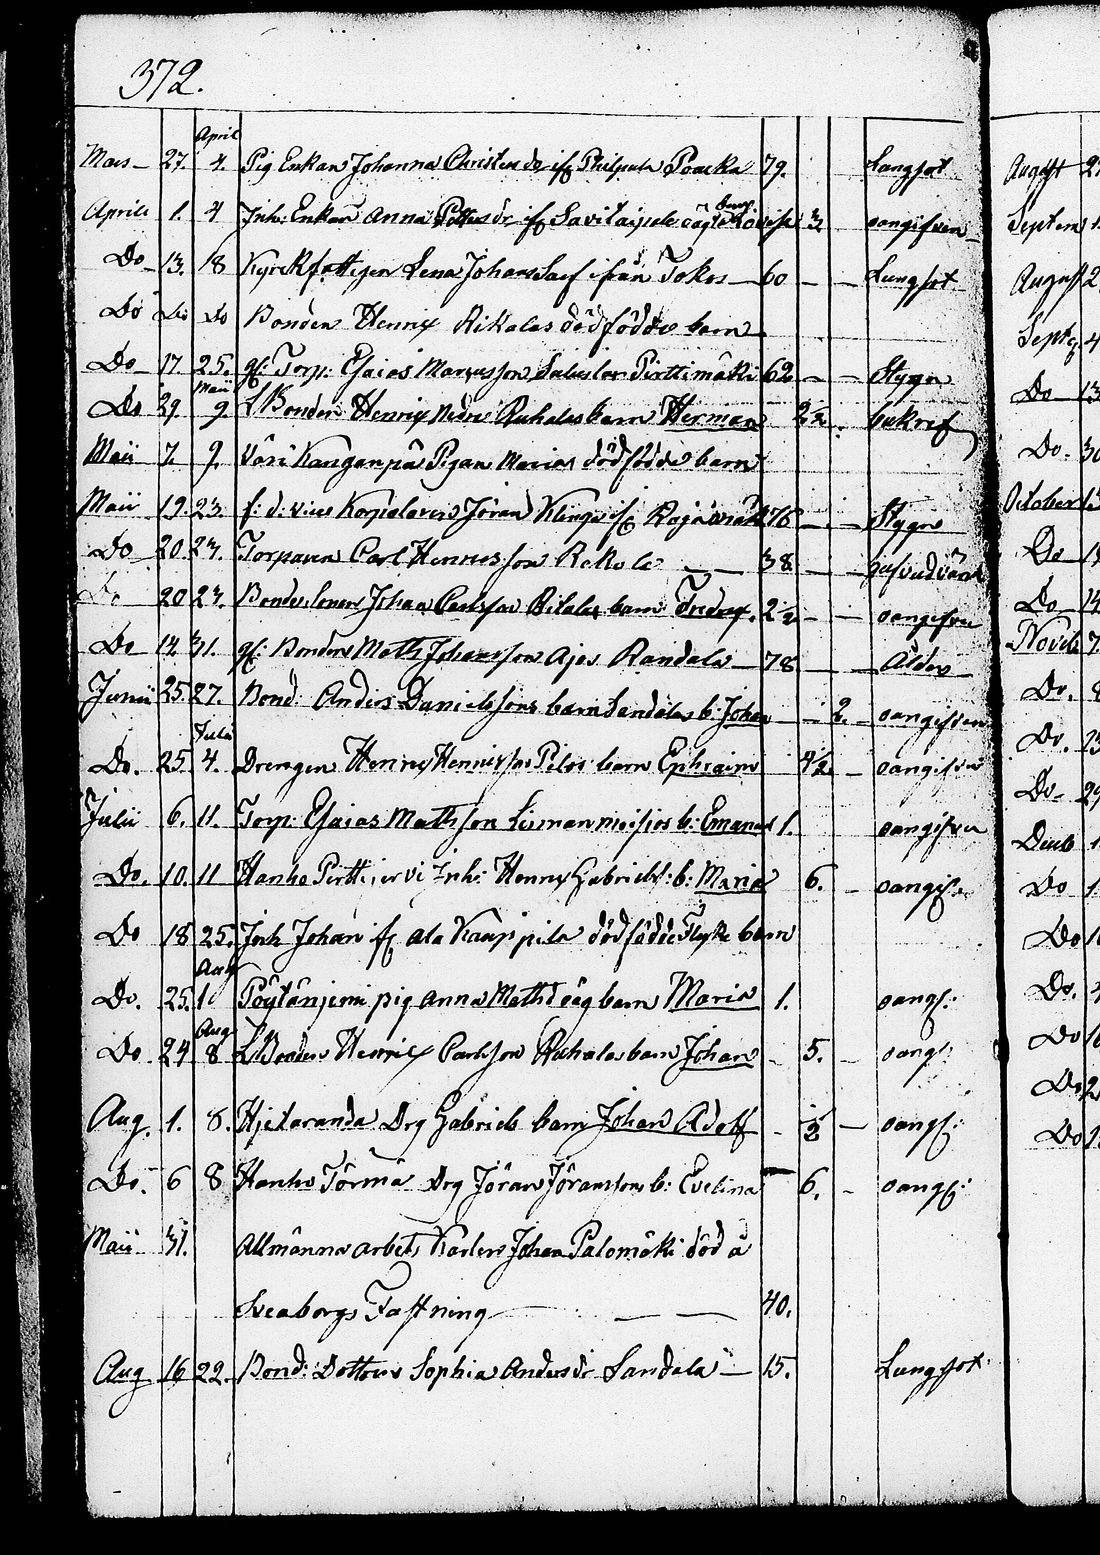 372.
April
Mars 27. 4. Pig Enkan Johanna Christersdr if Philpula Poucka 79. Lungsot
barn
Aprill 1. 4 Inh: Enkan Anna if Savitaipale oägta Lovisa 3 oangifven
Do 13. 18 Kyrckfattigen Lena Johans ifrån Tokos 60 Lungsot
Do Do Do Bonden Henrix Rikalas dödfödde barn
Do 17. 25. gl: Torp: Esaias Marcusson Pirttimäki 62 Stygn
Maii
Do 29. 9 LBonden Henrix Nedre Ruhalas barn Herman 22 bukref
Maii 7. 9. Kangan på Pigan Marias dödfödde barn
Maii 19. 23. f: d: vice Korpolaren Jöran Klinga if 76 Stygn
Do 20. 23. Torparen Carl Henrixsson Rekola 38 hufvudvärk
Do 20 23. Bonde Sonen Johan Carlsson Rikalas barn Fredrix. 2½ oangifven
Do 14. 31. gl: Bonden Math Johansson Ajos Randala 78 Ålder
Junii 25. 27. Bond: Anders Danielssons barn Sandalas b: Johan 2. oangifven
Julii
Do. 25. 4. Drengen Henrix Henrixson Pelos barn Ephraim 4½ oangifven
Julii 6. 11. Torp: Esaias Mathsson b: Emanuel 1. oangifven
Do. 10. 11 Hanho Pirttijervi Inh: Henrix Gabriels: b: Maria 6. oangif:
Do 18 25. Inh Johan if Ala Kauppila dödfödde barn
Aug
Do. 25. 1 Pöytänjemi pig Anna Mathsd: oäg barn Maria 1. oangf:
Aug
Do 24 8. LBonden Henrix Carlsson Ruhalas barn Johan 5. oangf:
Aug. 1. 8. Hjetaranda Drg Gabriels barn Johan Adolf oangf:
Do. 6 8 Hanho Törmä Drg Jöran Jöranssons b: Evelina 6. oangf:
Maii 31. Allmänna arbets Karlen Johan Palomäki död å
Sveaborgs Fästning 40.
Aug 16 22. Bond: Dottren Sophia Andersdr Sandala 15. Lungsot
August 2
Septem
August 2
Septe 4
Do 13
Do. 30
October
Do
Do 14
Noveb 7.
Do. 8
Do.
Do 29
Deceb
Do 1
Do
Do.
Do
Do
Do